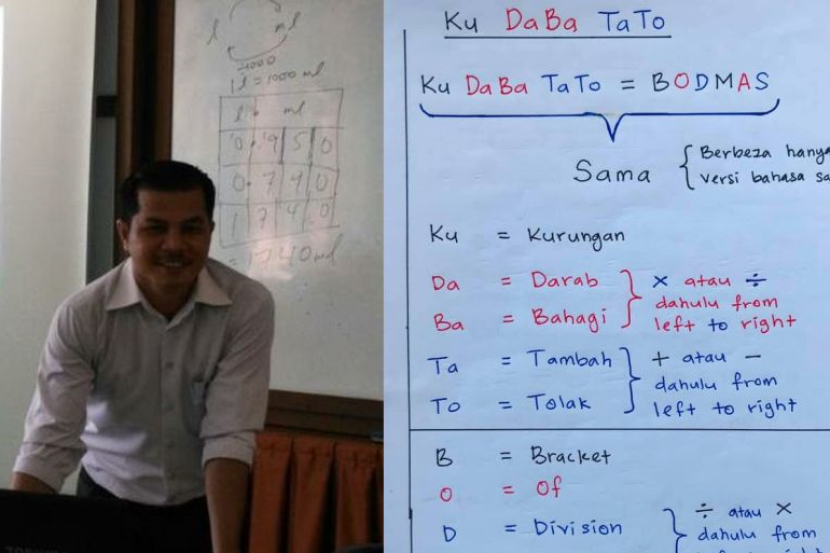 l ml
1000
1 l = 1000 ml
l ml
0 9 5 0
0 7 9 0
1 7 4 0
= 1740 ml
Ku DaBa TaTo
Ku DaBa TaTo = BODMAS
Sama
Berbeza hanya
versi bahasa sa
Ku = Kurungan
Da = Darab
Ba = Bahagi
× atau ÷
dahulu from
left to right
Ta = Tambah
To = Tolak
+ atau −
dahulu from
left to right
B = Bracket
O = Of
D = Division
÷ atau ×
dahulu from